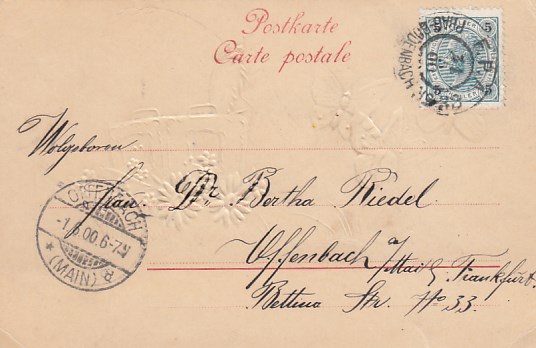 Postkarte
Carte postale
5
PRAG BODENBACH
Wolgeboren
Frau Dr. Bertha Riedel
Offenbach a/
Main b Frankfurt
Bettina Str. No 33.
OFFENBACH
6-7N
* (MAIN) *